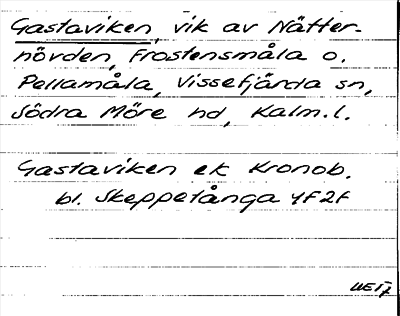 Gastaviken, vik av Nätter-
hövden, Frostensmåla o.
Pellamåla, Vissefjärda sn,
Södra Möre hd, Kalm.l.
Gastaviken ek Kronob.
bl. Skeppetånga 4F2f